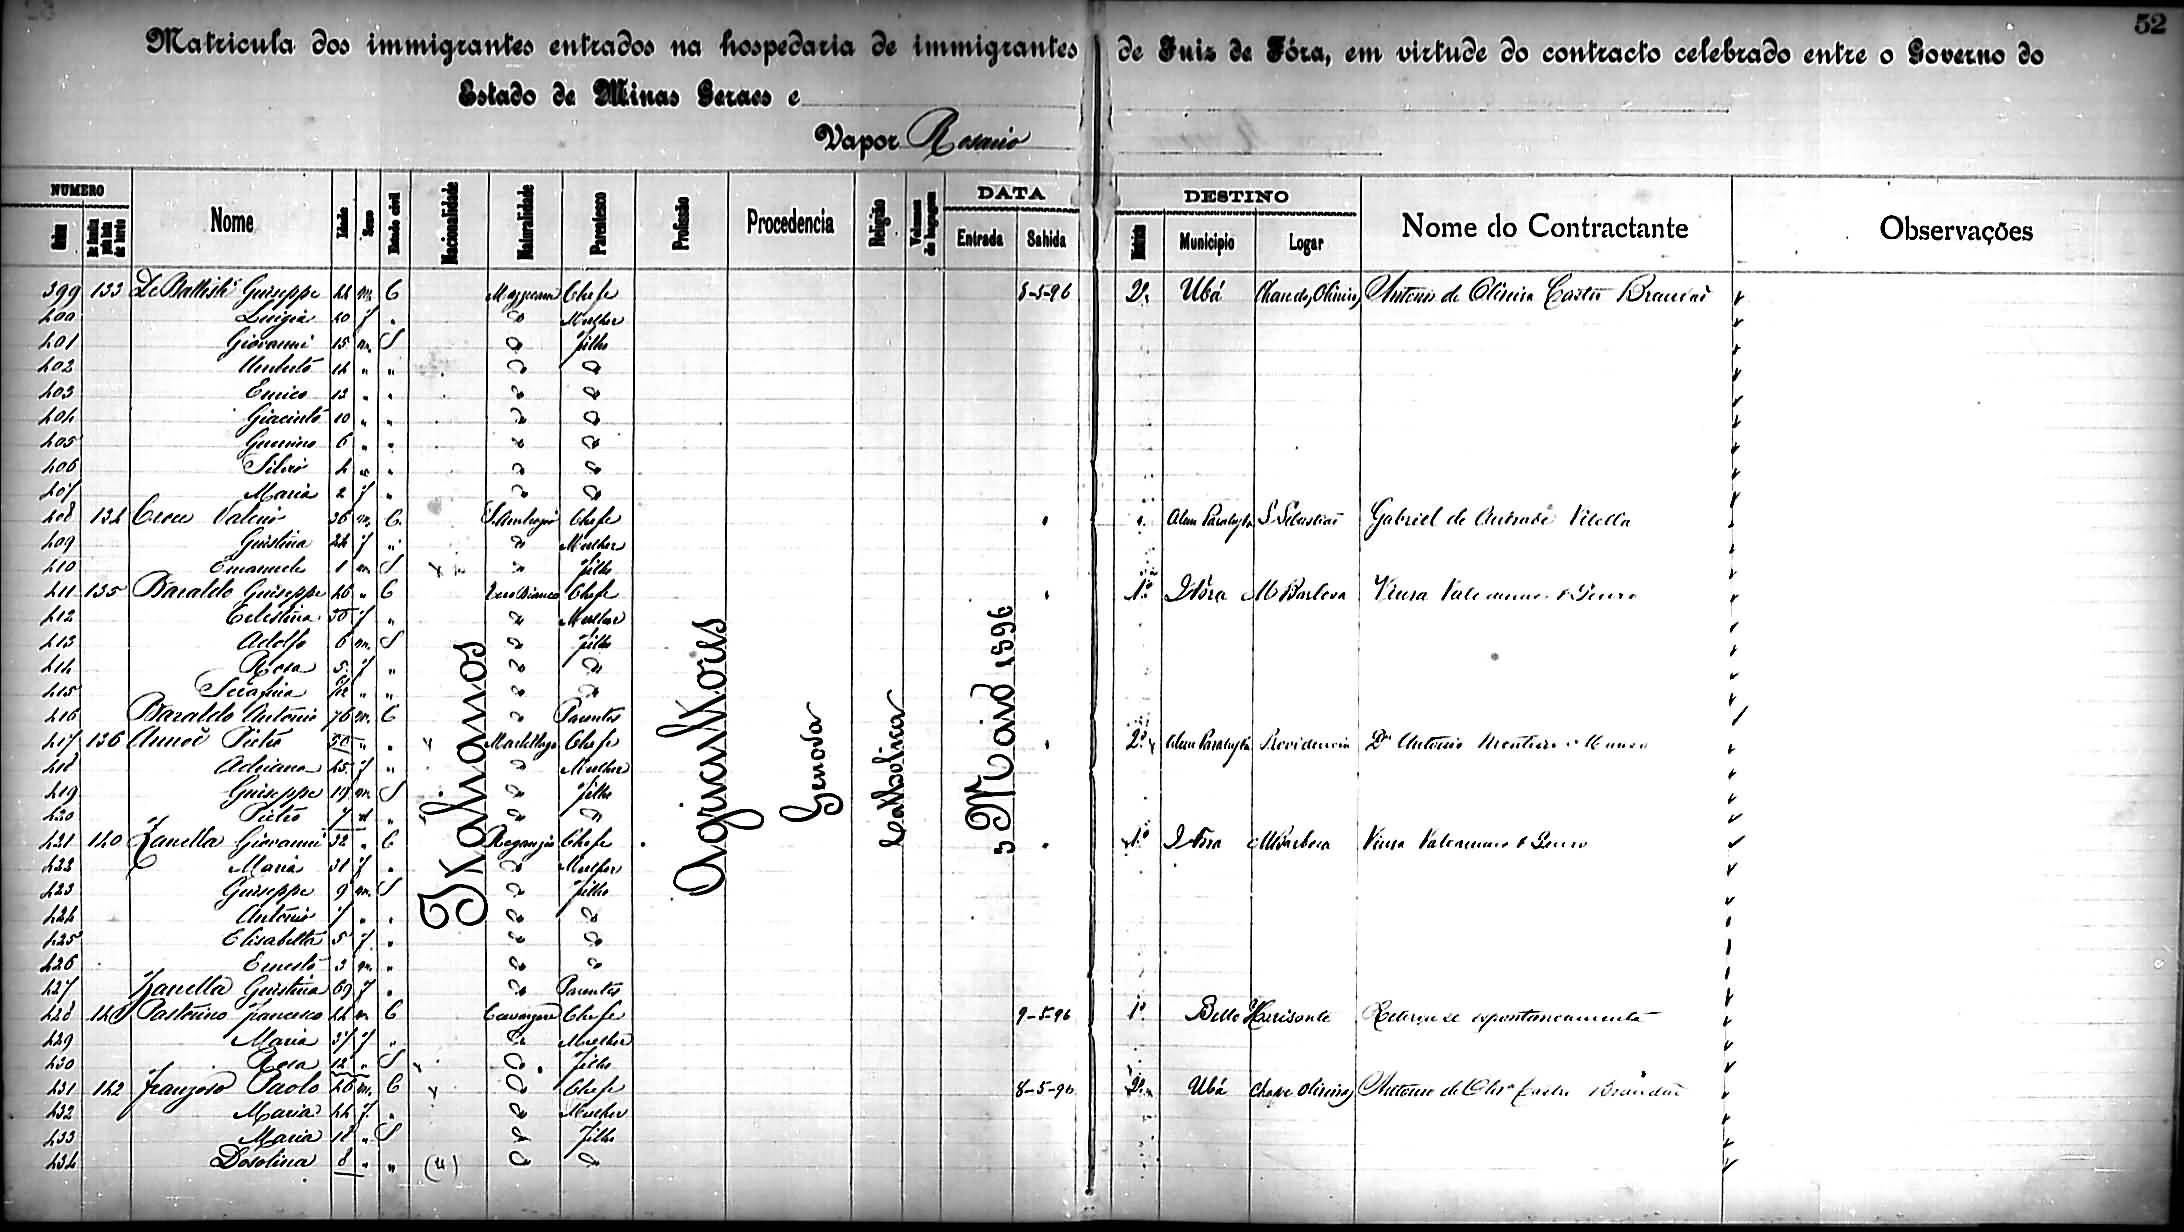 52
Matricula dos immigrantes entrados na hospedaria de immigrantes de Juiz de Fóra, em virtude do contracto celebrado entre o Governo do
Estado de Minas Geraes e
Vapor Rosario
NUMERO Nome Idade Sexo Estado civil Nacionalidade Naturalidade Parentesco Profissão Procedencia Religião Volumes de bagagem DATA DESTINO Nome do Contractante Observações
Ordem Entrada Sahida Districto Municipio Logar
Italianos Agricultores Genova Catholica 5 Maio 1896
399 133 De Battisti Guiseppe 44 m. C Chefe 8-5-96 2º Ubá Antonio de Oliveira Castro Brandão
400 Luigia 40 f " do Mulher
401 Giovanni 15 m. S do filho
402 Umberto 14 " " do do
403 Enrico 12 " " do do
404 Giacinto 10 " " do do
405 Guerrino 6 " " do do
406 Silvio 4 " " do do
407 Maria 2 f " do do
408 134 Croce Valerio 36 m. C. S. Ambrogio Chefe " " Alem Parahyba S. Sebastião Gabriel de Andrade Vilella
409 Guistina 24 f " do Mulher
410 Emanuele 1 m S do filho
411 135 Baraldo Guiseppe 46 " C Chefe " 1º J Fóra M Barbosa
412 Celestina 30 f " do Mulher
413 Adolfo 6 m. S do filho
414 Rosa 5 f " do do
415 Serafina " " do do
416 Baraldo Antonio 76 m. C do Parentes
417 136 Pietro 50 " " Chefe " 2º Alem Parahyba Providencia Dr Antonio Monteiro
418 Adriana 45 f " do Mulher
419 Guiseppe 19 m S do filho
420 Pietro 7 " " do do
421 140 Zanella Giovanni 32 " C Chefe " 1º J Fóra M Barbosa
422 Maria 31 f " do Mulher
423 Guiseppe 9 m. S do filho
424 Antonio 7 " " do do
425 Elisabetta 5 f " do do
426 Ernesto 3 m. " do do
427 Zanella Guistina 69 f " do Parentes
428 141 Pastorino Francesco 44 m C Cavarzere Chefe 9-5-96 1º Bello Horisonte Retirou se espontaneamente
429 Maria 37 f " do Mulher
430 Rosa 12 " S do filho
431 142 Franzoso Paolo 46 m. C do Chefe 8-5-96 2º Ubá Antonio de Olivª Castro Brandão
432 Maria 44 f. " do Mulher
433 Maria 18 " S do filho
434 Dosolina 8 " " (4) do do